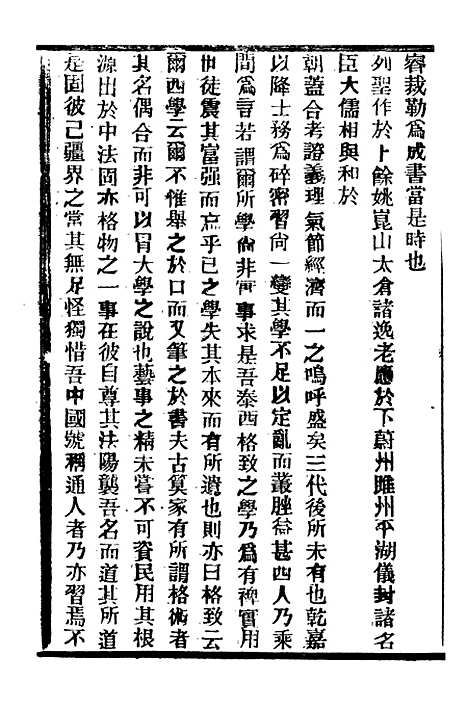 睿裁勒為成書當是時也
列聖作於上餘姚崑山太倉諸逸老應於下蔚州睢州平湖儀封諸名
臣大儒相與和於
朝蓋合考證義理氣節經濟而一之嗚呼盛矣三代後所未有也乾嘉
以降士務為碎密習尚一變其學不足以定亂而叢脞益甚西人乃乘
間為言若謂爾所學尚非實事求是吾泰西格致之學乃為有裨實用
世徒震其富强而忘乎已之學失其本來而有所遺也則亦曰格致云
爾西學云爾不惟舉之於口而又筆之於書夫古算家有所謂格術者
其名偶合而非可以冒大學之說也藝事之精未嘗不可資民用其根
源出於中法固亦格物之一事在彼自尊其法陽襲吾名而道其所道
是固彼己疆界之常其無足怪獨惜吾中國號稱通人者乃亦習焉不